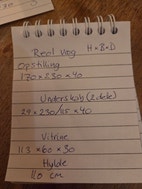 Reol Væg H×B×D
Opstilling
180×230×40
Underskab (2 dele)
29×230/115×40
Vitrine
113×60×30
Hylde
110 cm